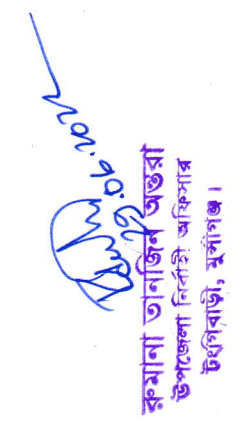 ২৭.০৬.২০২২
রুমানা তানজিন অন্তরা
উপজেলা নির্বাহী অফিসার
টংগিবাড়ী, মুন্সীগঞ্জ।